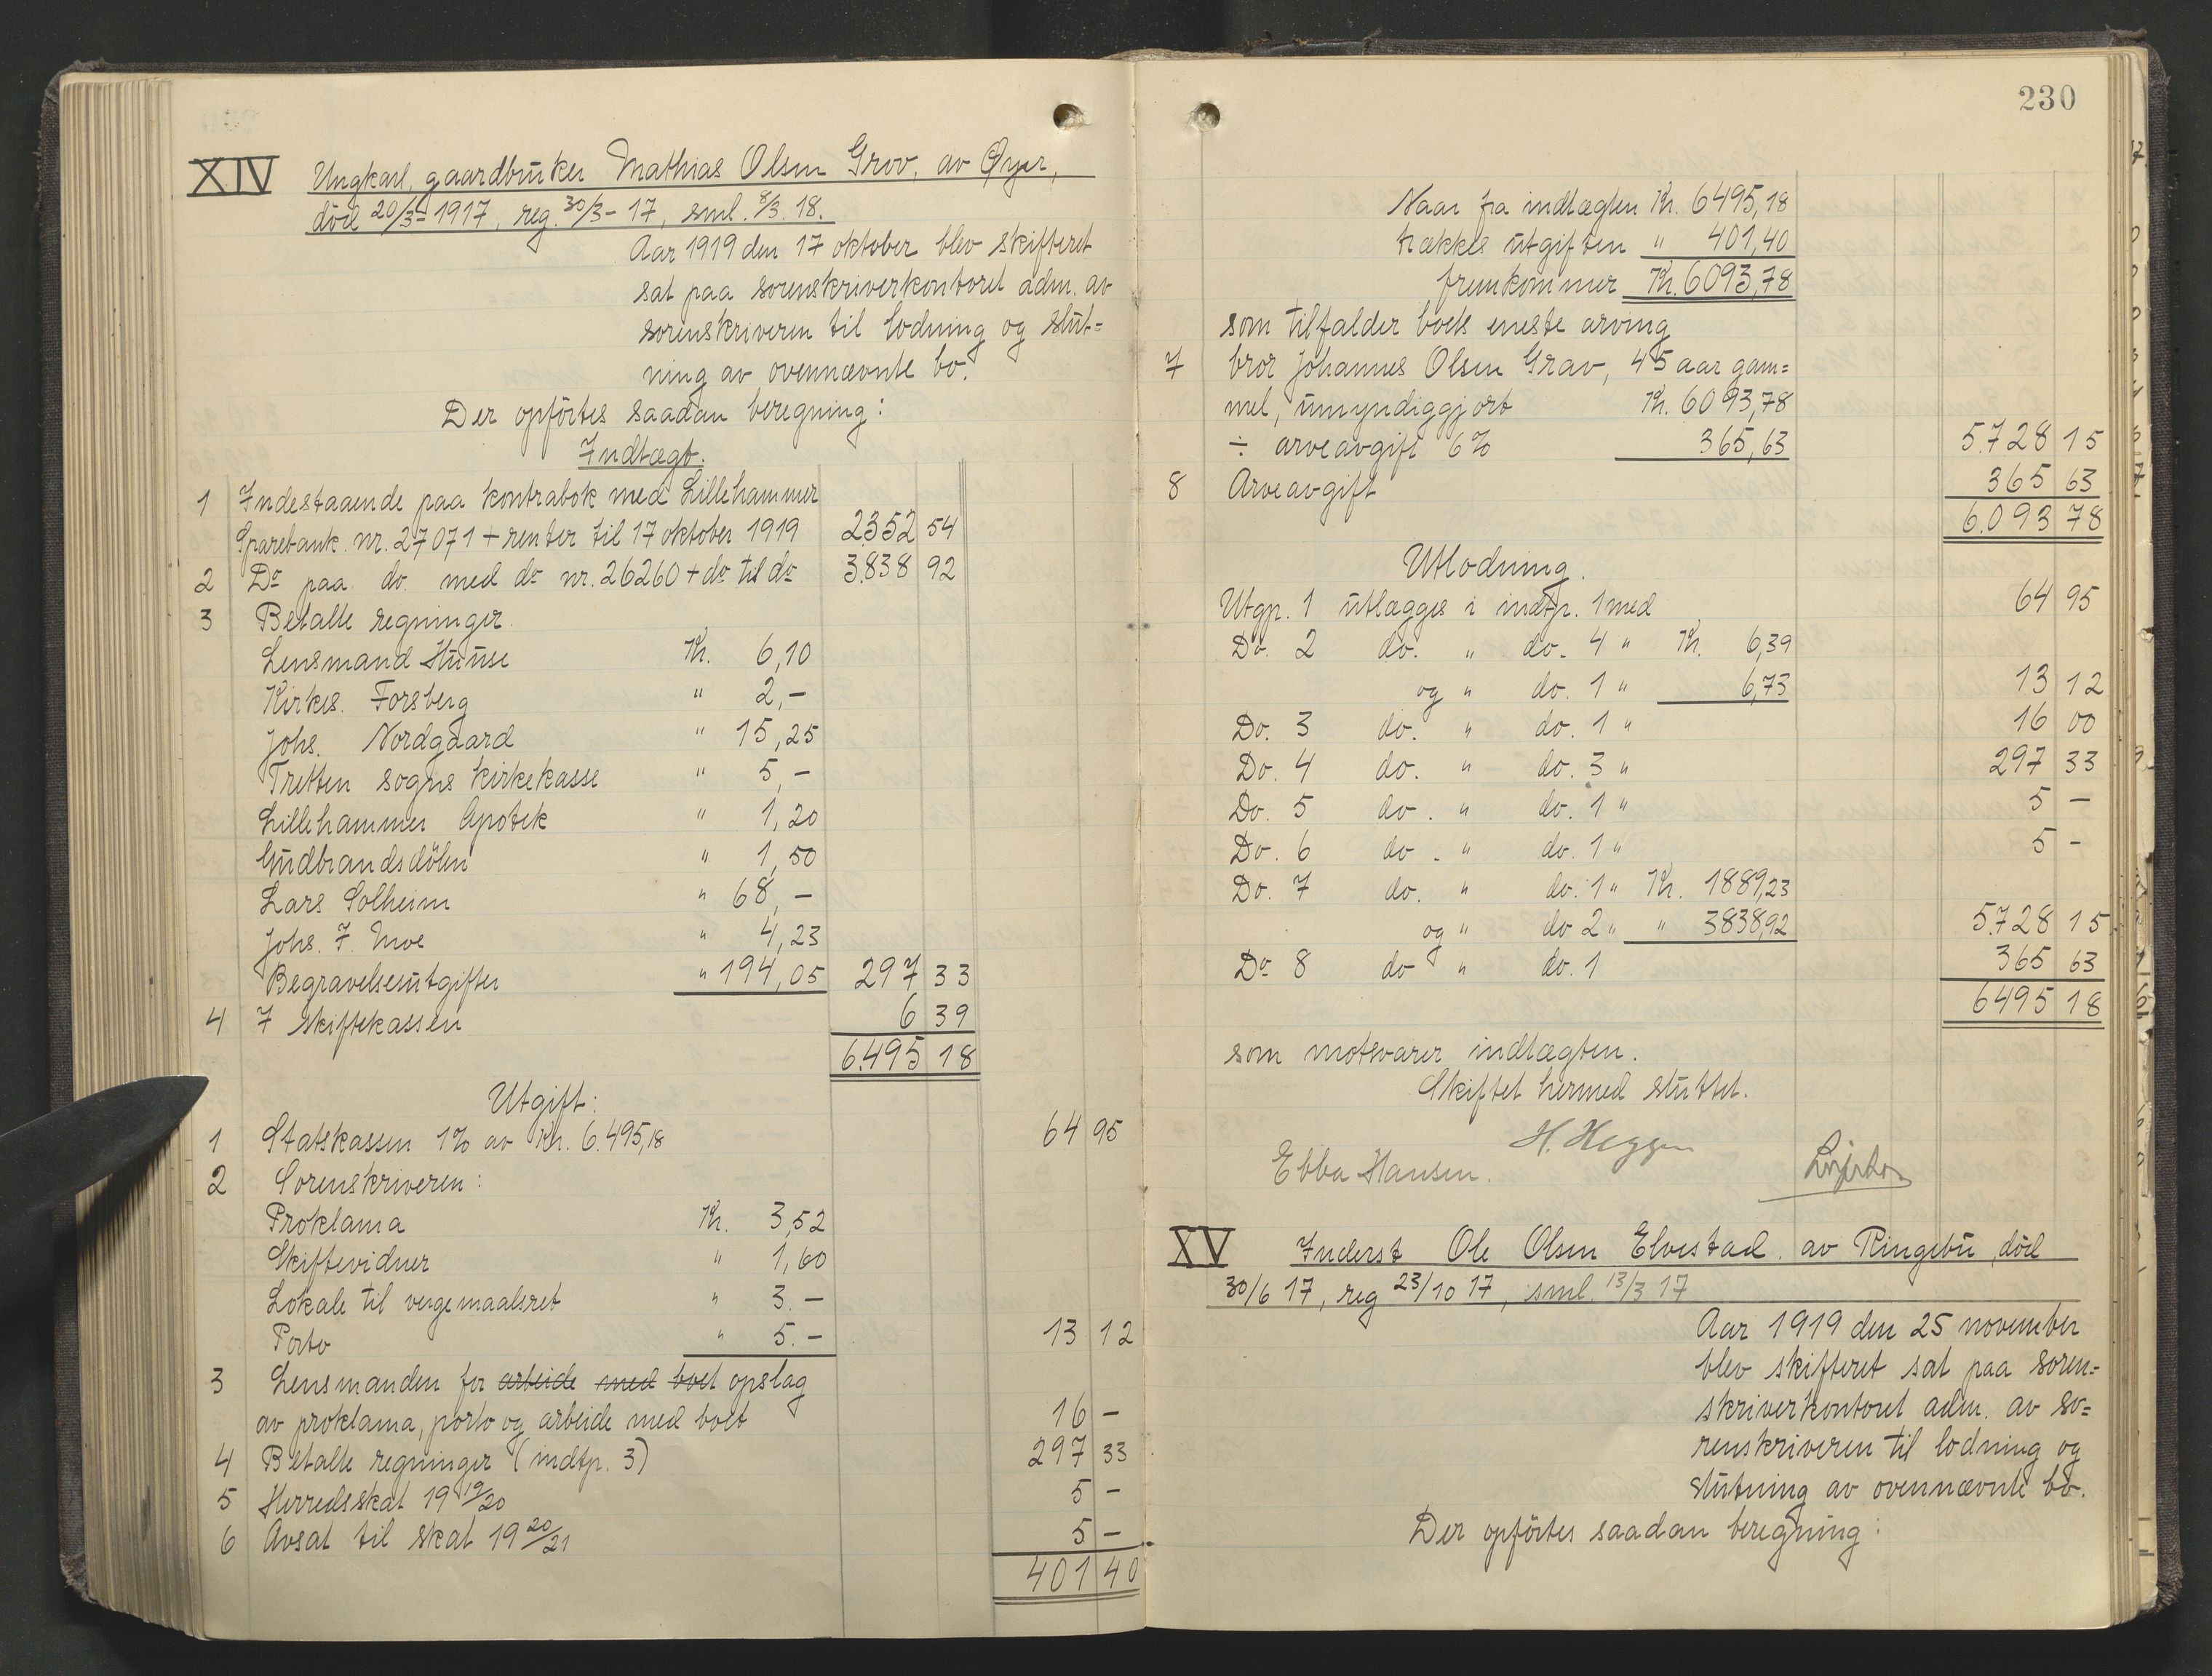 XIV Ungkarl, gaardbruker Mathias Olsen Grov, av Øyer,
död 20/3-1917, reg. 30/3-17, sml. 8/3. 18.
Aar 1919 den 17 oktober blev skifteret
sat paa sorenskriverkontoret adm. av
sorenskriveren til lodning og slut=
ning av ovennævnte bo.
Der opførtes saadan beregning:
Indtægt.
1 Indestaaende paa kontrabok med Lillehammer
Sparebank nr. 27071 + renter til 17 oktober 1919 2.352 54
2 Do paa do. med do nr. 26260 + do til do 3.838 92
3 Betalte regninger
Lensmand Huuse Kr. 6,10
Kirkes. Forsberg " 2,-
Johs. Nordgaard " 15,25
Tretten sogns kirkekasse " 5,-
Lillehammer Apotek " 1,20
Gudbrandsdölen " 1,50
Lars Solheim " 68,-
Johs. J. Moe " 4,23
Begravelsesutgifter " 194,05 297 33
4 I skiftekassen 6 39
6.495 18
Utgift:
1 Statskassen 1% av Kr. 6.495,18 64 95
2 Sorenskriveren:
Proklama Kr. 3,52
Skiftevidner " 1,60
Lokale til vergemaalsret " 3.-
Porto " 5.- 13 12
3 Lensmanden for arbeide med boet opslag
av proklama, porto og arbeide med boet 16 -
4 Betalte regninger (indtp. 3) 297 33
5 Herredsskat 19 19/20 5 -
6 Avsat til skat 19 20/21 5 -
401 40
230
Naar fra indtægten Kr. 6495,18
trækkes utgiften " 401,40
fremkommer Kr. 6093,78
som tilfalder boets eneste arving
7 bror Johannes Olsen Grav, 45 aar gam=
mel, umyndiggjort Kr. 6093,78
÷ arveavgift 6% 365,63 5.728 15
8 Arveavgift 365 63
6.093 78
Utlodning.
Utgp. 1 utlægges i indtp. 1 med 64 95
Do. 2 do. " do. 4 " Kr. 6,39
og " do. 1 " 6,73 13 12
Do. 3 do. " do. 1 " 16 00
Do. 4 do. " do. 3 " 297 33
Do. 5 do. " do. 1 " 5 -
Do. 6 do. " do. 1 " 5 -
Do. 7 do. " do. 1 " Kr. 1889,23
og " do 2 " " 3838,92 5.728 15
Do 8 do " do. 1 365 63
6495 18
som motsvarer indtægten.
Skiftet hermed sluttet.
H. Heggen
Ebba Hansen.
XV Inderst Ole Olsen Elvestad av Ringebu, död
30/6 17, reg 23/10 17, sml. 13/3 17
Aar 1919 den 25 november
blev skifteret sat paa soren=
skriverkontoret adm. av so=
renskriveren til lodning og
slutning av ovennævnte bo.
Der opførtes saadan beregning: